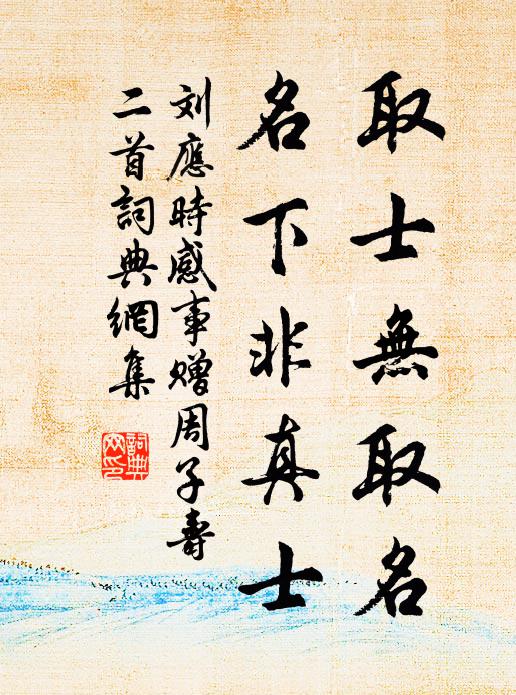 取士無取名
名下非真士
刘應時感事贈周子壽
二首詞典網集
詞典
网印